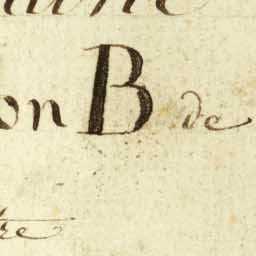 on B de
tre